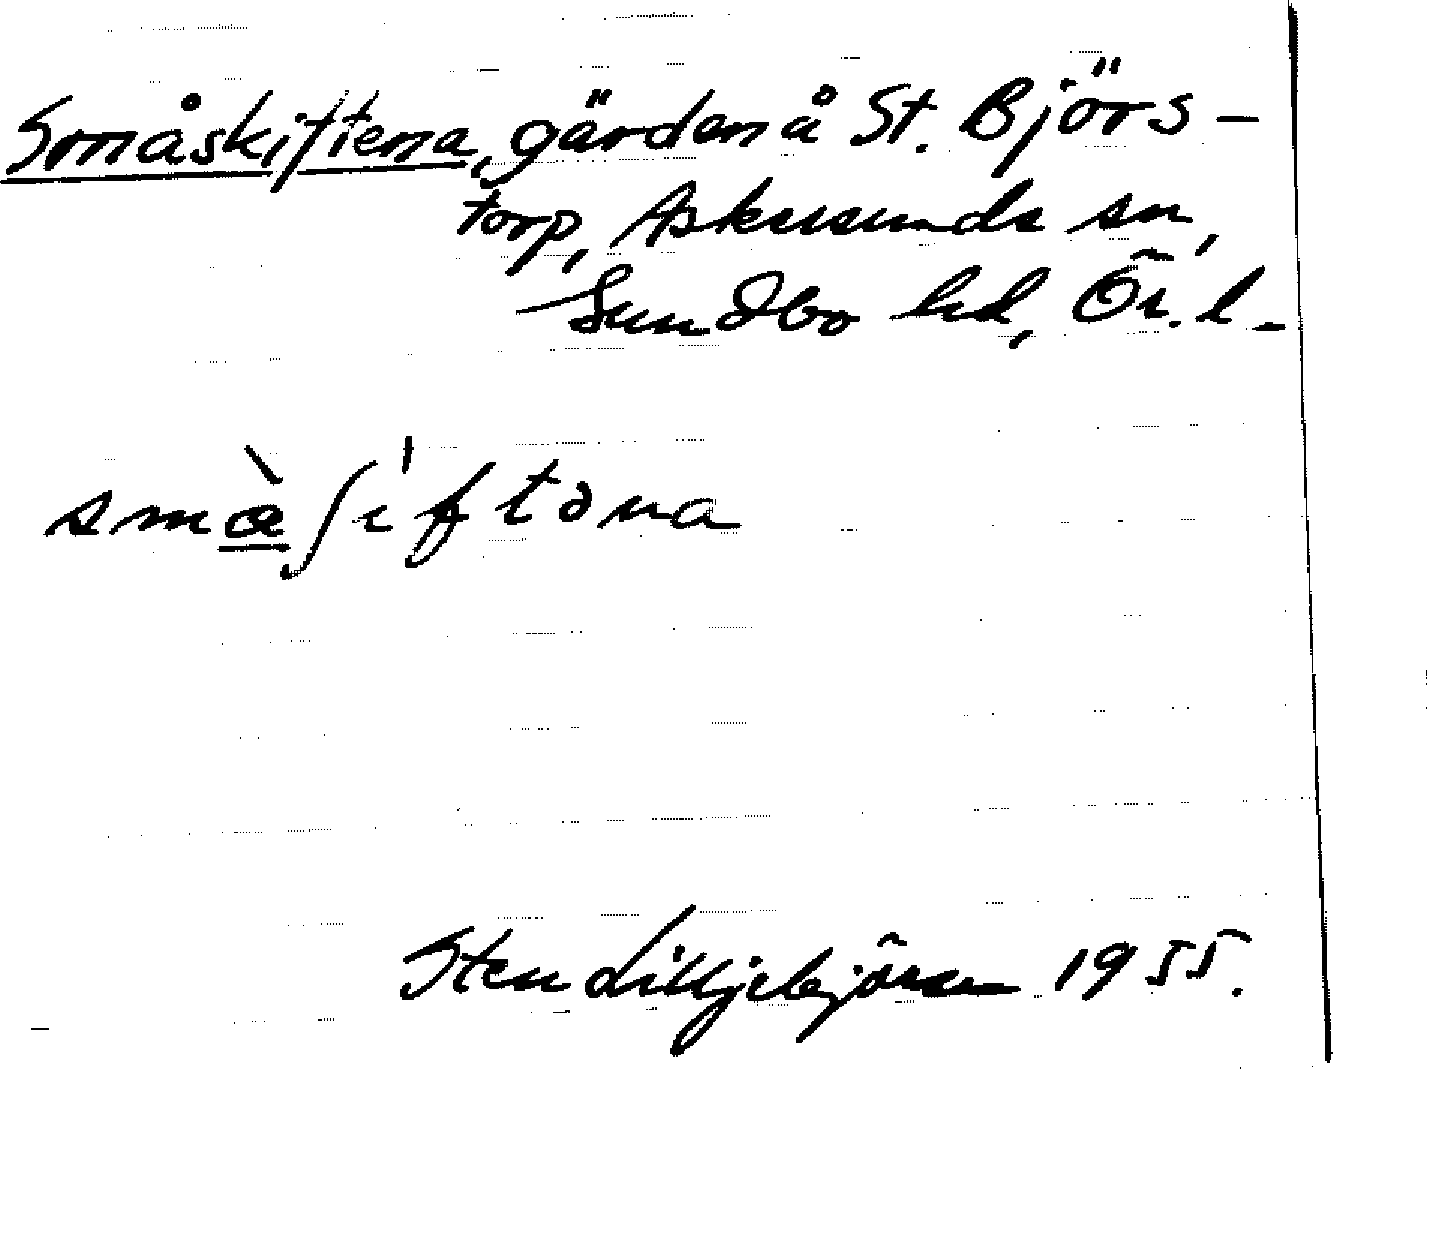 Småskiftena, gärden å St. Björs-
torp, Askersunds sn,
Sundbo hd, Ör. l.
smæ̀ʃíftəna
Sten Lilljebjörn 1955.